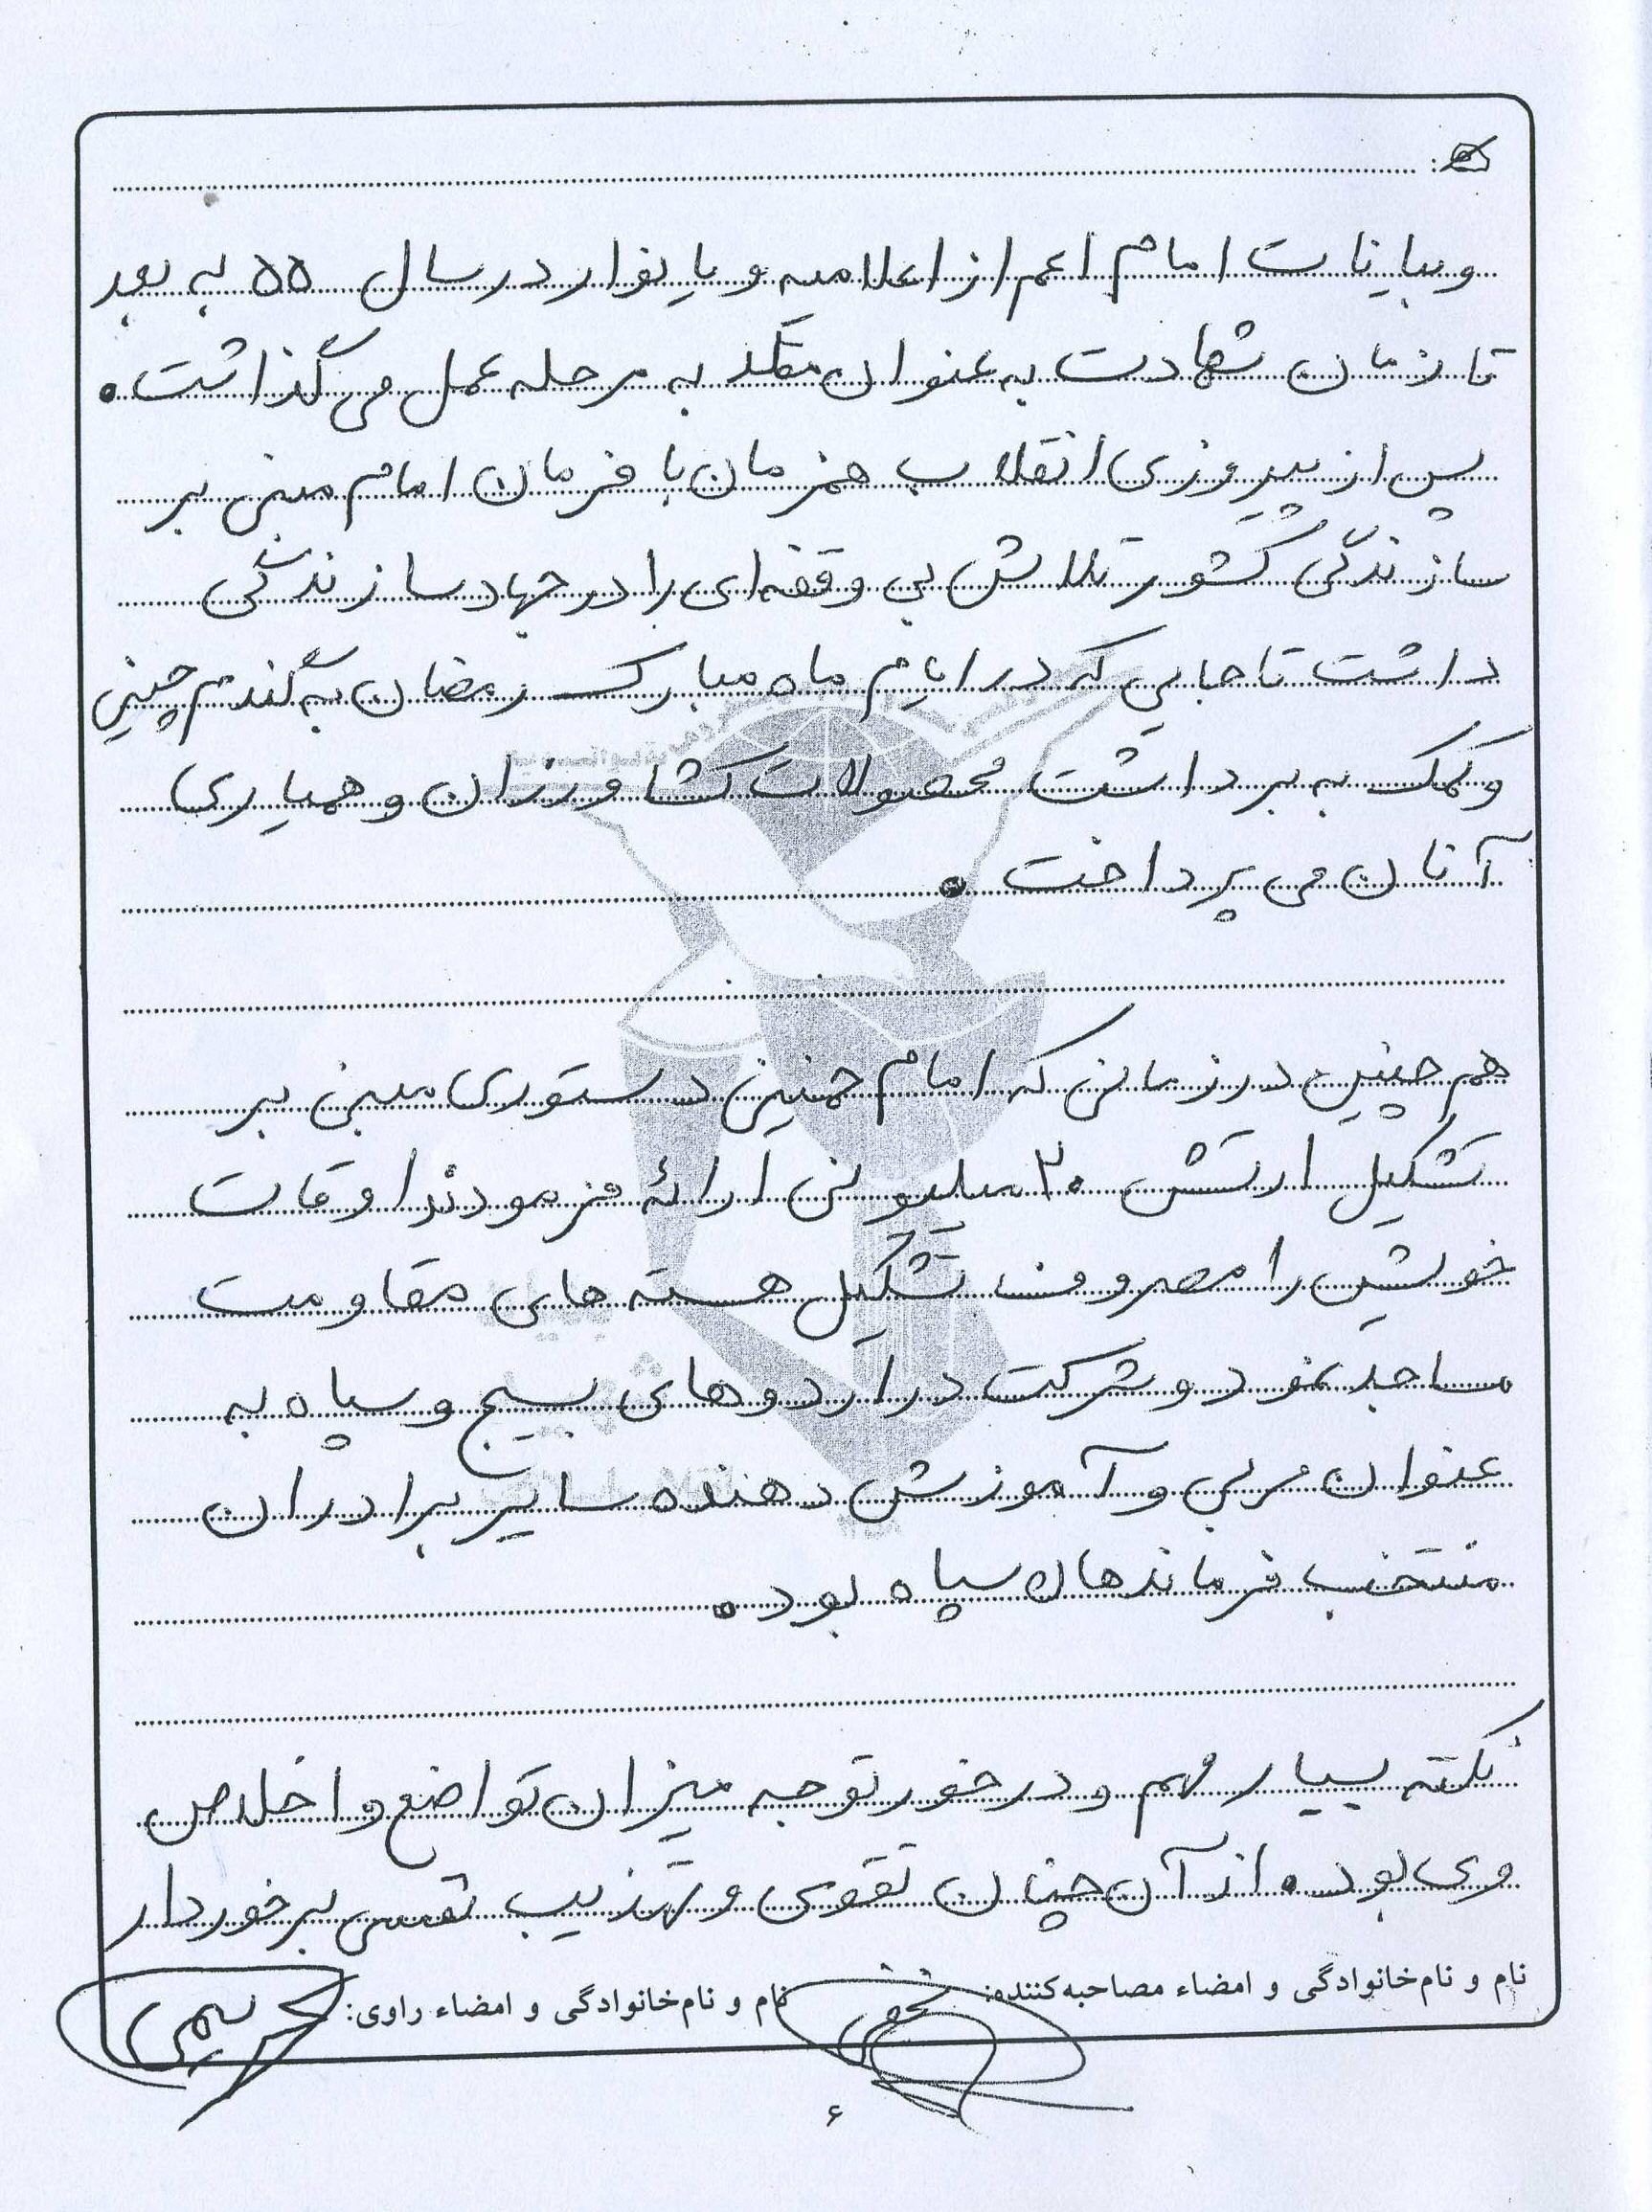 و بیانات امام اعم از اعلامیه و یا نوار در سال ۵۵ به بعد
تا زمان شهادت به عنوان مقلد به مرحله عمل می گذاشت.
پس از پیروزی انقلاب همزمان با فرمان امام مبنی بر
سازندگی کشور تلاش بی وقفه ای را در جهاد سازندگی
داشت تا جایی که در ایام ماه مبارک رمضان به گندم چینی
و کمک به برداشت محصولات کشاورزان و همیاری
آنان می پرداخت.
هم چنین در زمانی که امام خمینی دستوری مبنی بر
تشکیل ارتش ۲۰ میلیونی ارائه فرمودند اوقات
خویش را مصروف تشکیل هسته های مقاومت
مساجد نمود و شرکت در اردوهای بسیج و سپاه به
عنوان مربی و آموزش دهنده سایر برادران
منتخب فرماندهان سپاه بود.
نکته بسیار مهم و درخور توجه میزان تواضع و اخلاص
وی بود. از آن چنان تقوی و تهذیب نفسی برخوردار
نام و نام‌خانوادگی و امضاء مصاحبه‌کننده: نجفی نام و نام‌خانوادگی و امضاء راوی:
۶